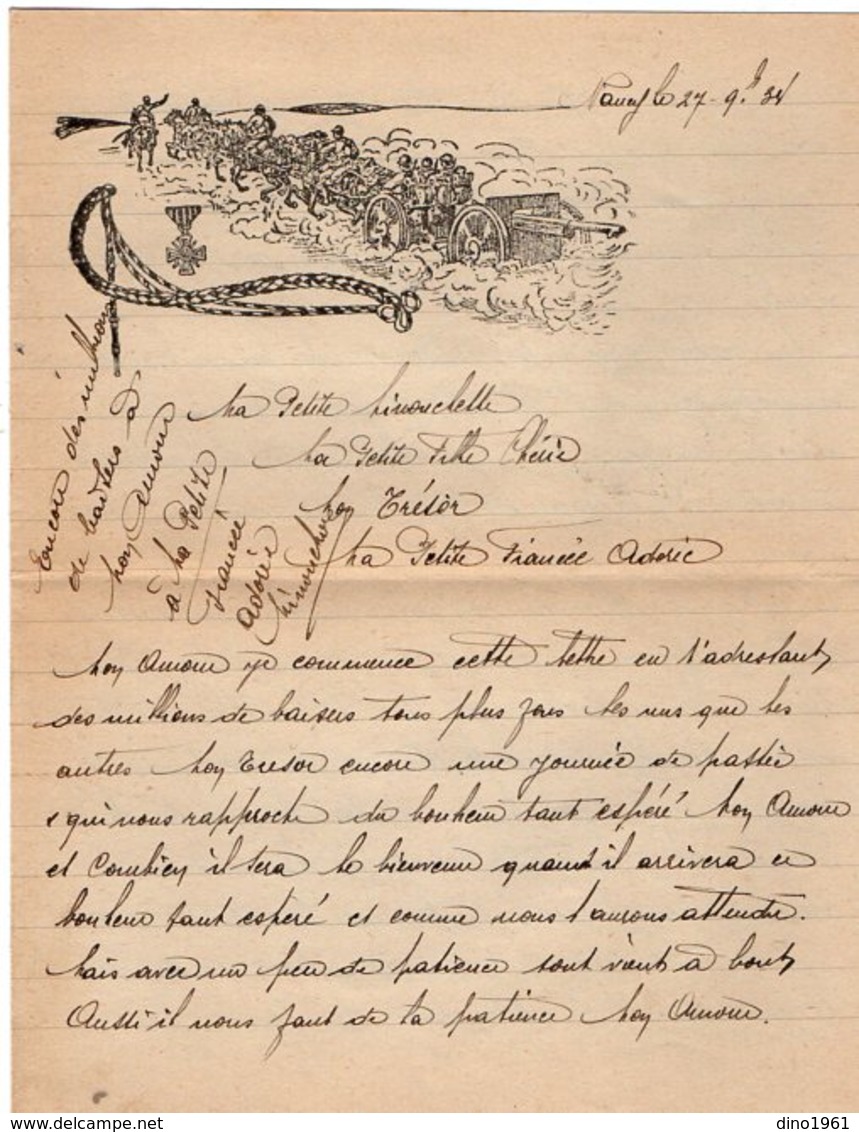 Nancy le 27-9bre 34
Ma Petite Ninouchette
Ma Petite Fille Chérie
Mon Trésor
Ma Petite Fiancée Adorée
Encore des millions
de baisers à
Mon Amour
à Ma Petite
Fiancée
adorée
Ninouche
Mon Amour je commence cette lettre en t'adressant
des millions de baisers tous plus fous les uns que les
autres Mon Tresor encore une journée de passée
qui nous rapproche du bonheur tant espéré Mon Amour
et Combien il sera le bienvenu quant il arrivera ce
bonheur tant espéré et comme nous l'aurons attendu.
Mais avec un peu de patience tout vient à bout
Aussi il nous faut de la patience Mon Amour.
dino1961